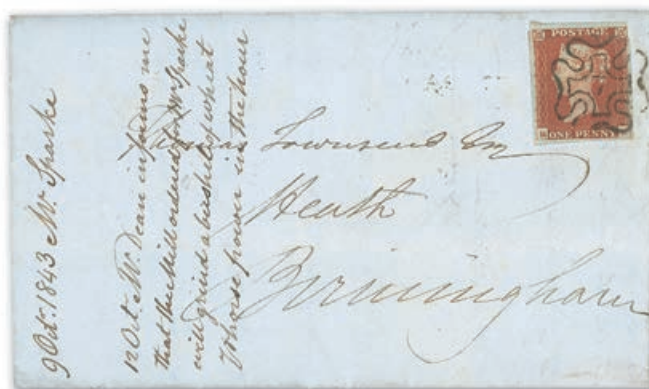 9 Oct. 1843 Mr Sparke
12 Oct. Mr. Dean informs me
that the Mill ordered for Mr Sparke
will grind a bushel of wheat
horse power in the hour
POSTAGE
ONE PENNY
Thomas Townsend Esq
Heath
Birmingham